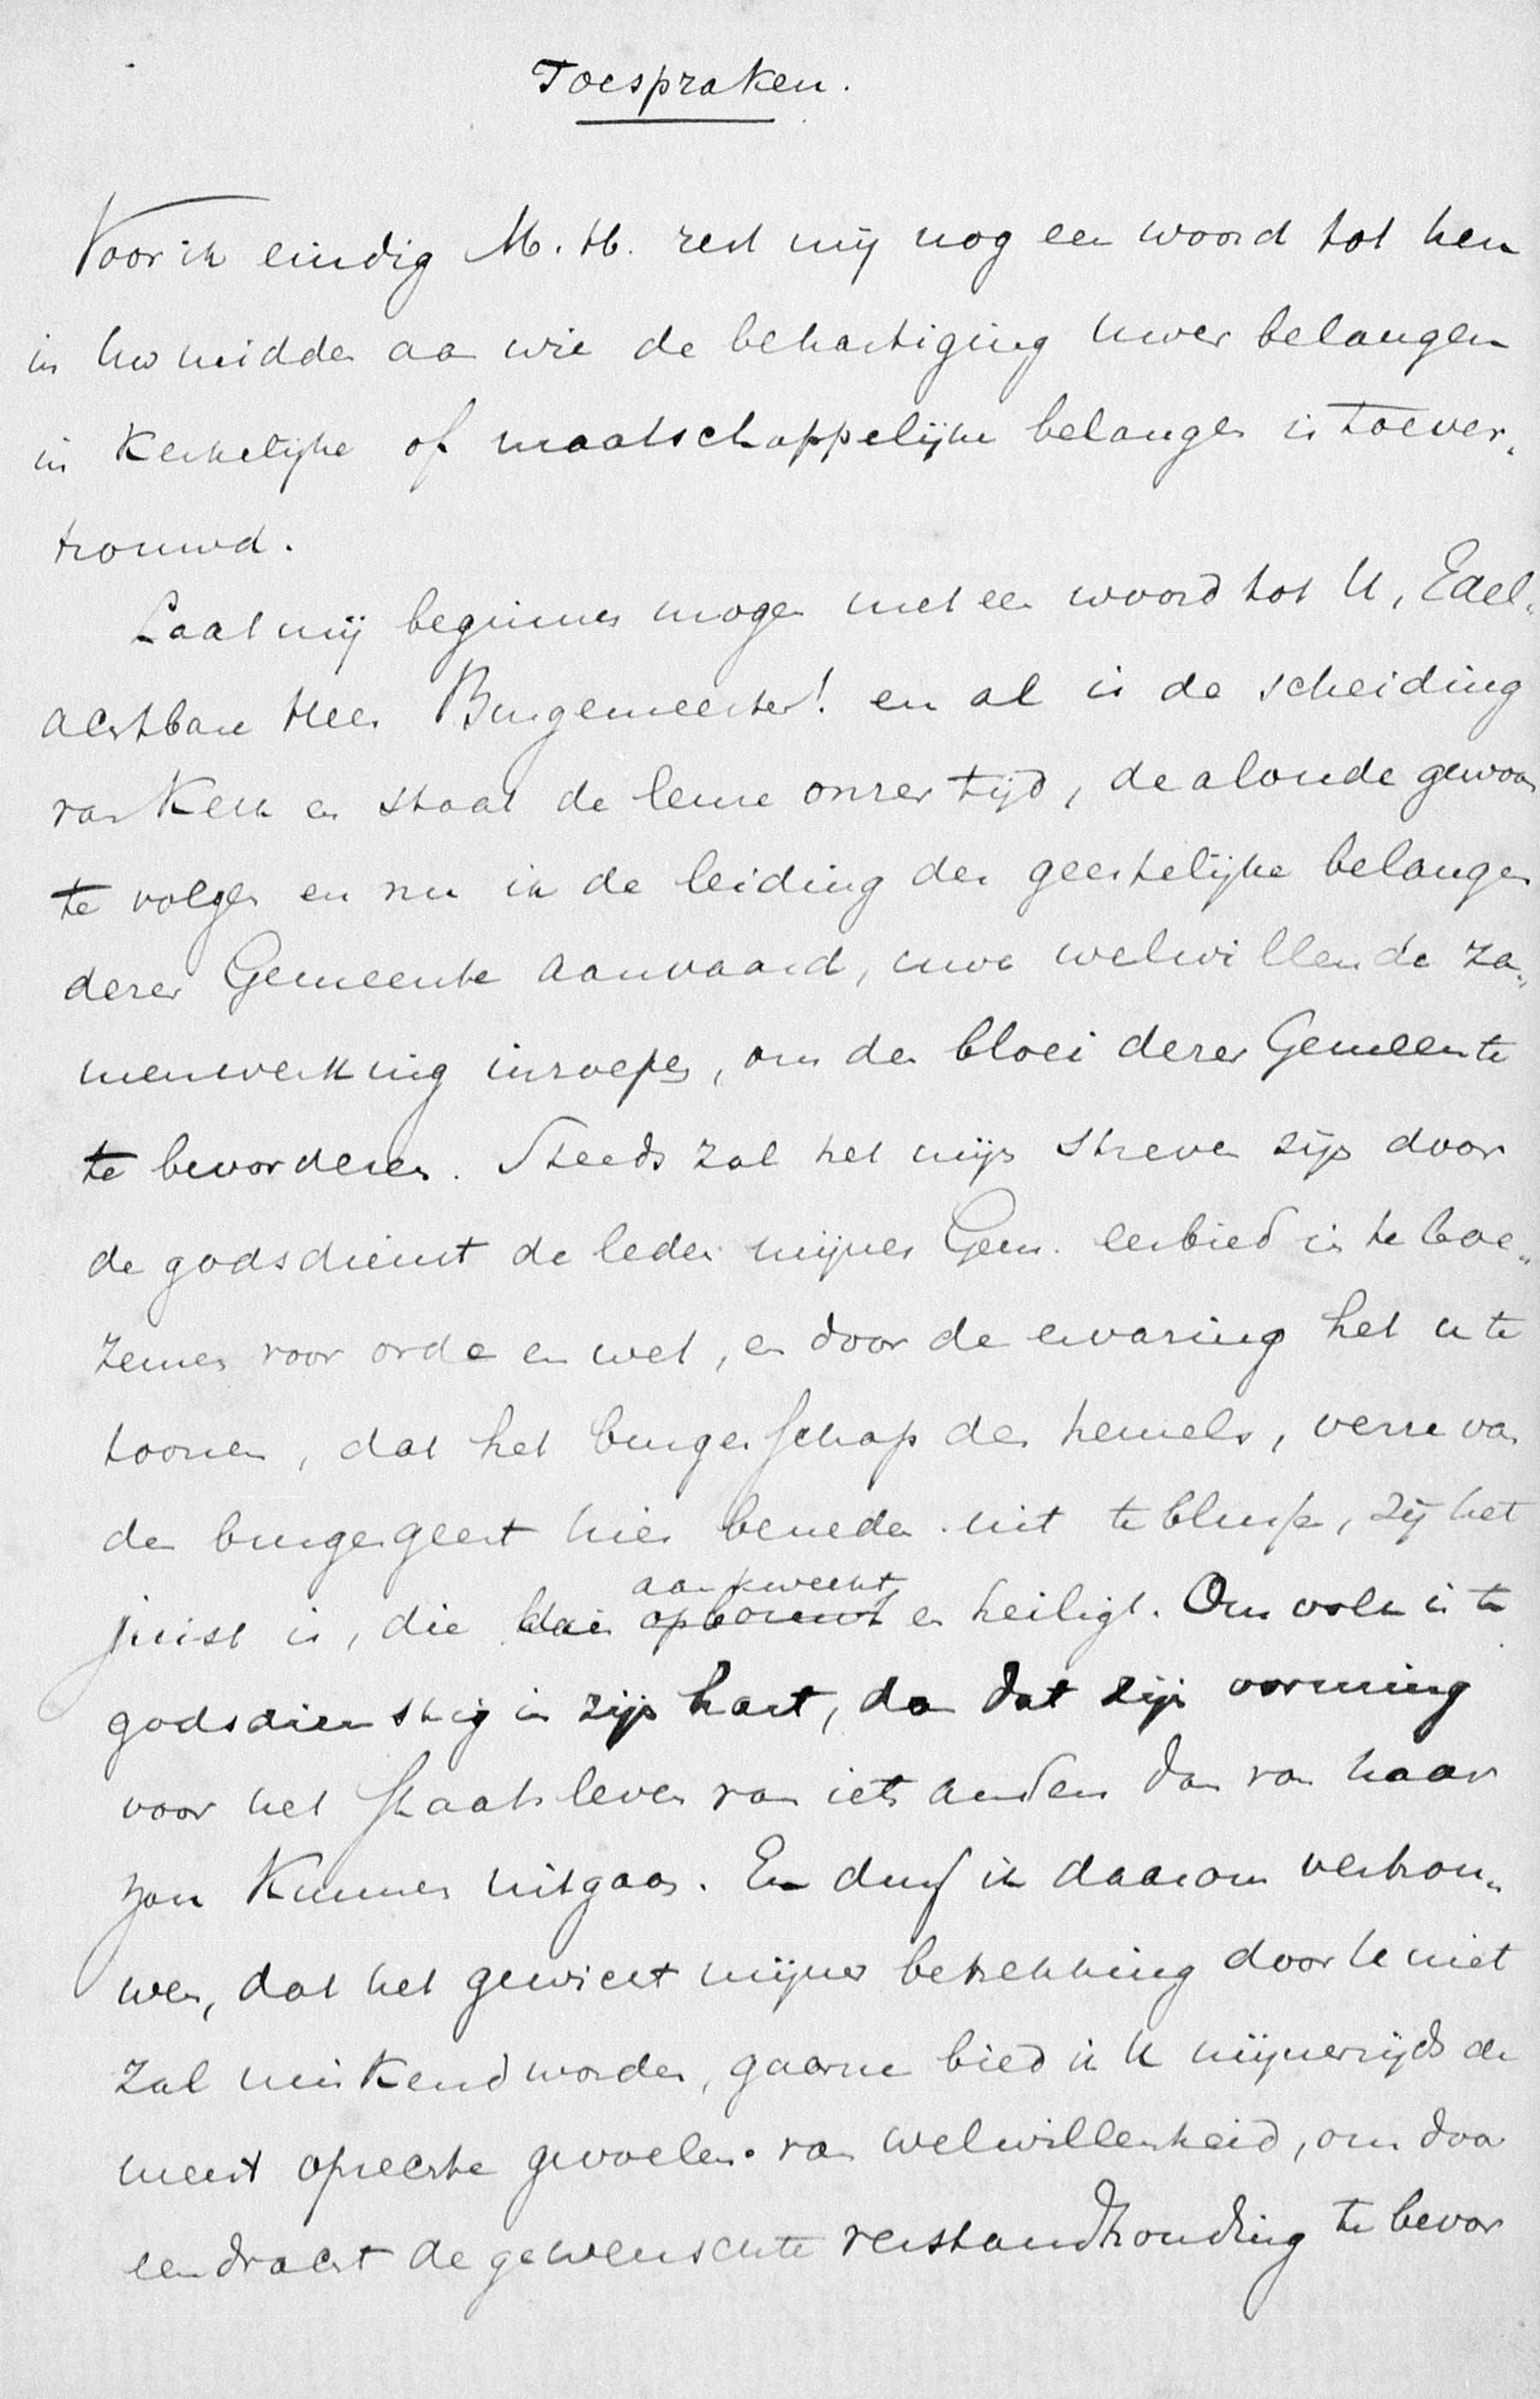 Toespraken.
Voor ik eindig M. H. rest mij nog een woord tot hen
in Uw midden aan wie de behartiging Uwer belangen
in Kerkelijke of maatschappelijke belangen is toever-
trouwd.
Laat mij beginnen mogen met een woord tot U, Edel-
achtbare Heer Burgemeester! en al is de scheiding
van Kerk en staat de leuze onzer tijd, de aloude gewoon
te volgen en nu ik de leiding der geestelijke belangen
dezer Gemeente aanvaard, uwe welwillende za-
menwerking inroepen, om den bloei dezer Gemeente
te bevorderen. Steeds zal het mijn streven zijn door
de godsdienst de leden mijner Gem. eerbied in te boe-
zemen voor orde en wet, en door de ervaring het u te
toonen, dat het burgerschap des hemels, verre van
den burgergeest hier beneden uit te blusschen, zij het
juist is, die dien opbouwt aankweekt en heiligt. Ons volk is te
godsdienstig in zijn hart, dan dat zijn vorming
voor het Staatsleven van iets anders dan van haar
zou Kunnen uitgaan. En durf ik daarom vertrou-
wen, dat het gewicht mijner betrekking door U niet
zal miskend worden, gaarne bied ik U mijnerzijds de
meest oprechte gevoelens van welwillendheid, om door
eendracht de gewenschte verstandhouding te bevor